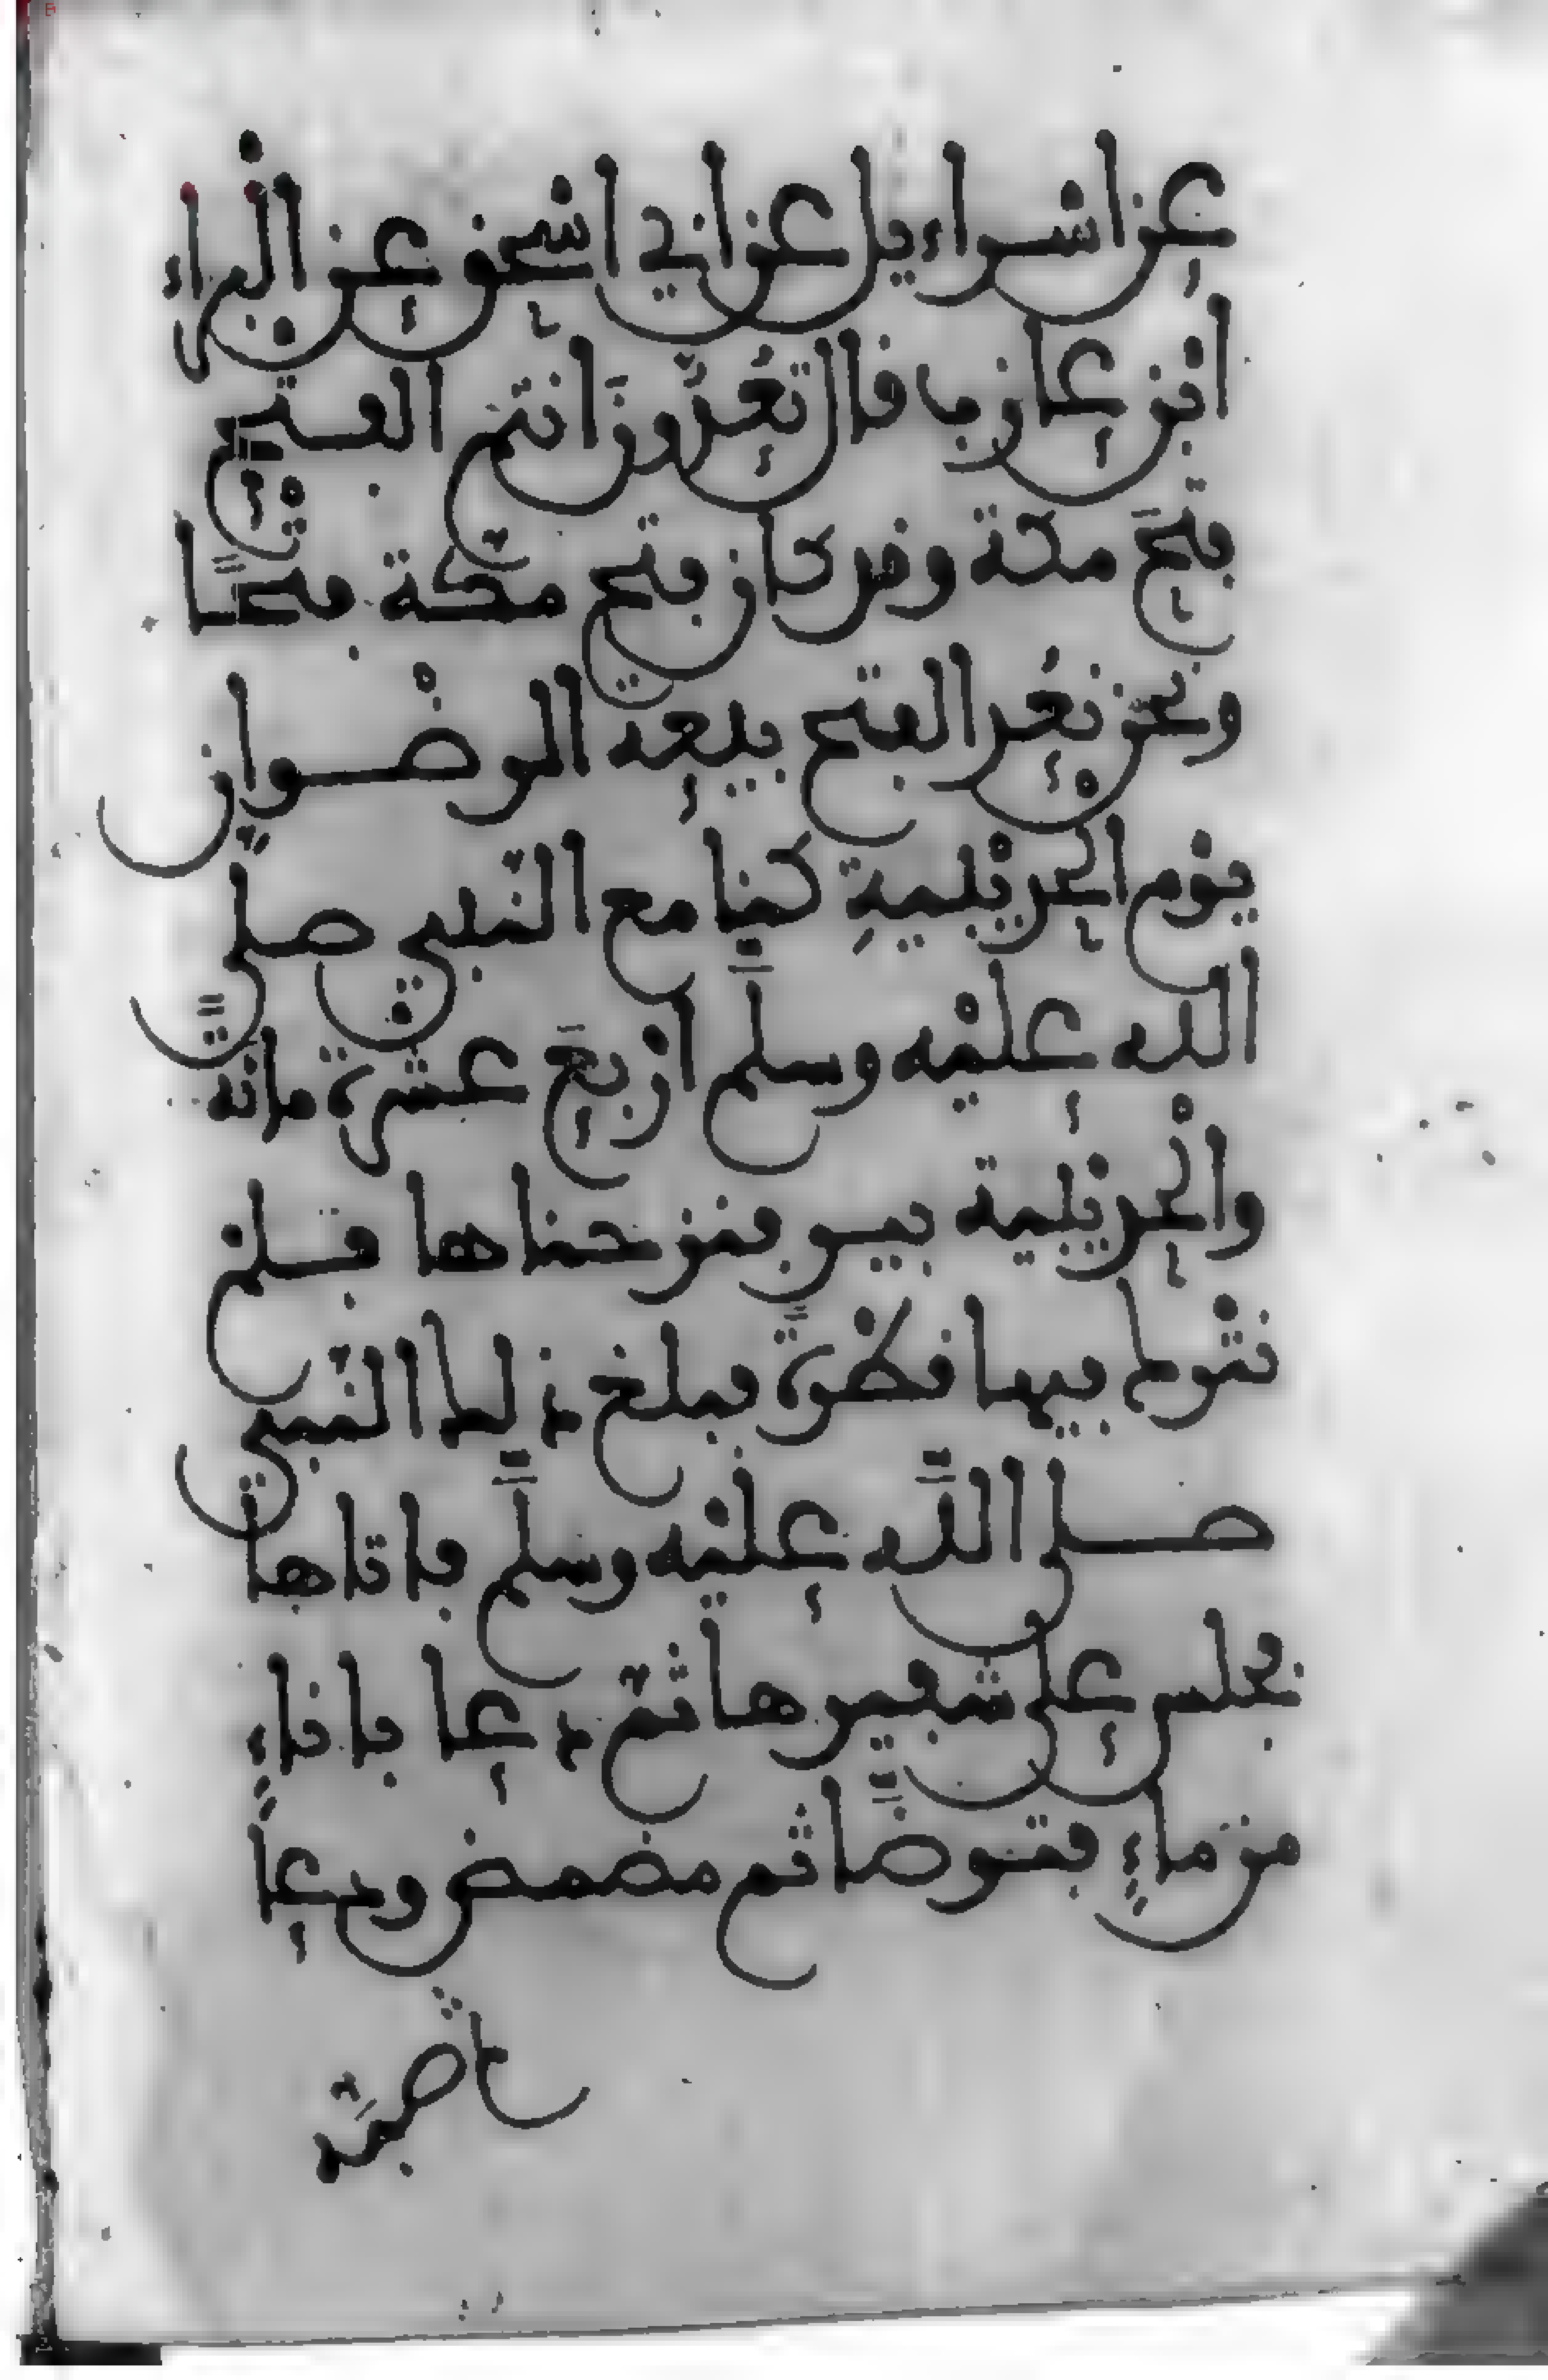 عن اسراءيل عن ابي اسحق عن البراء
ابن عازب قال تعدّون انتم الفتح
فتحَ مكة وقد كان فتح مكة فتحًا
ونحن نعد الفتح بيعة الرضوان
يوم الحديبيةِ كنا مع النّبيّ صلى
الله عليْه وسلّم اربعَ عشرة مائة
والْحديبية بير فنزحناها فلم
نترك فيها قطْرةً فبلغ ذلك النّبي
صلى اللّه عليْه وسلّم فاتاها
فجلس على شفيرها ثمّ دعا باناء
من ماءٍ فتوضّأ ثم مضمض ودعا
ثم صبّه